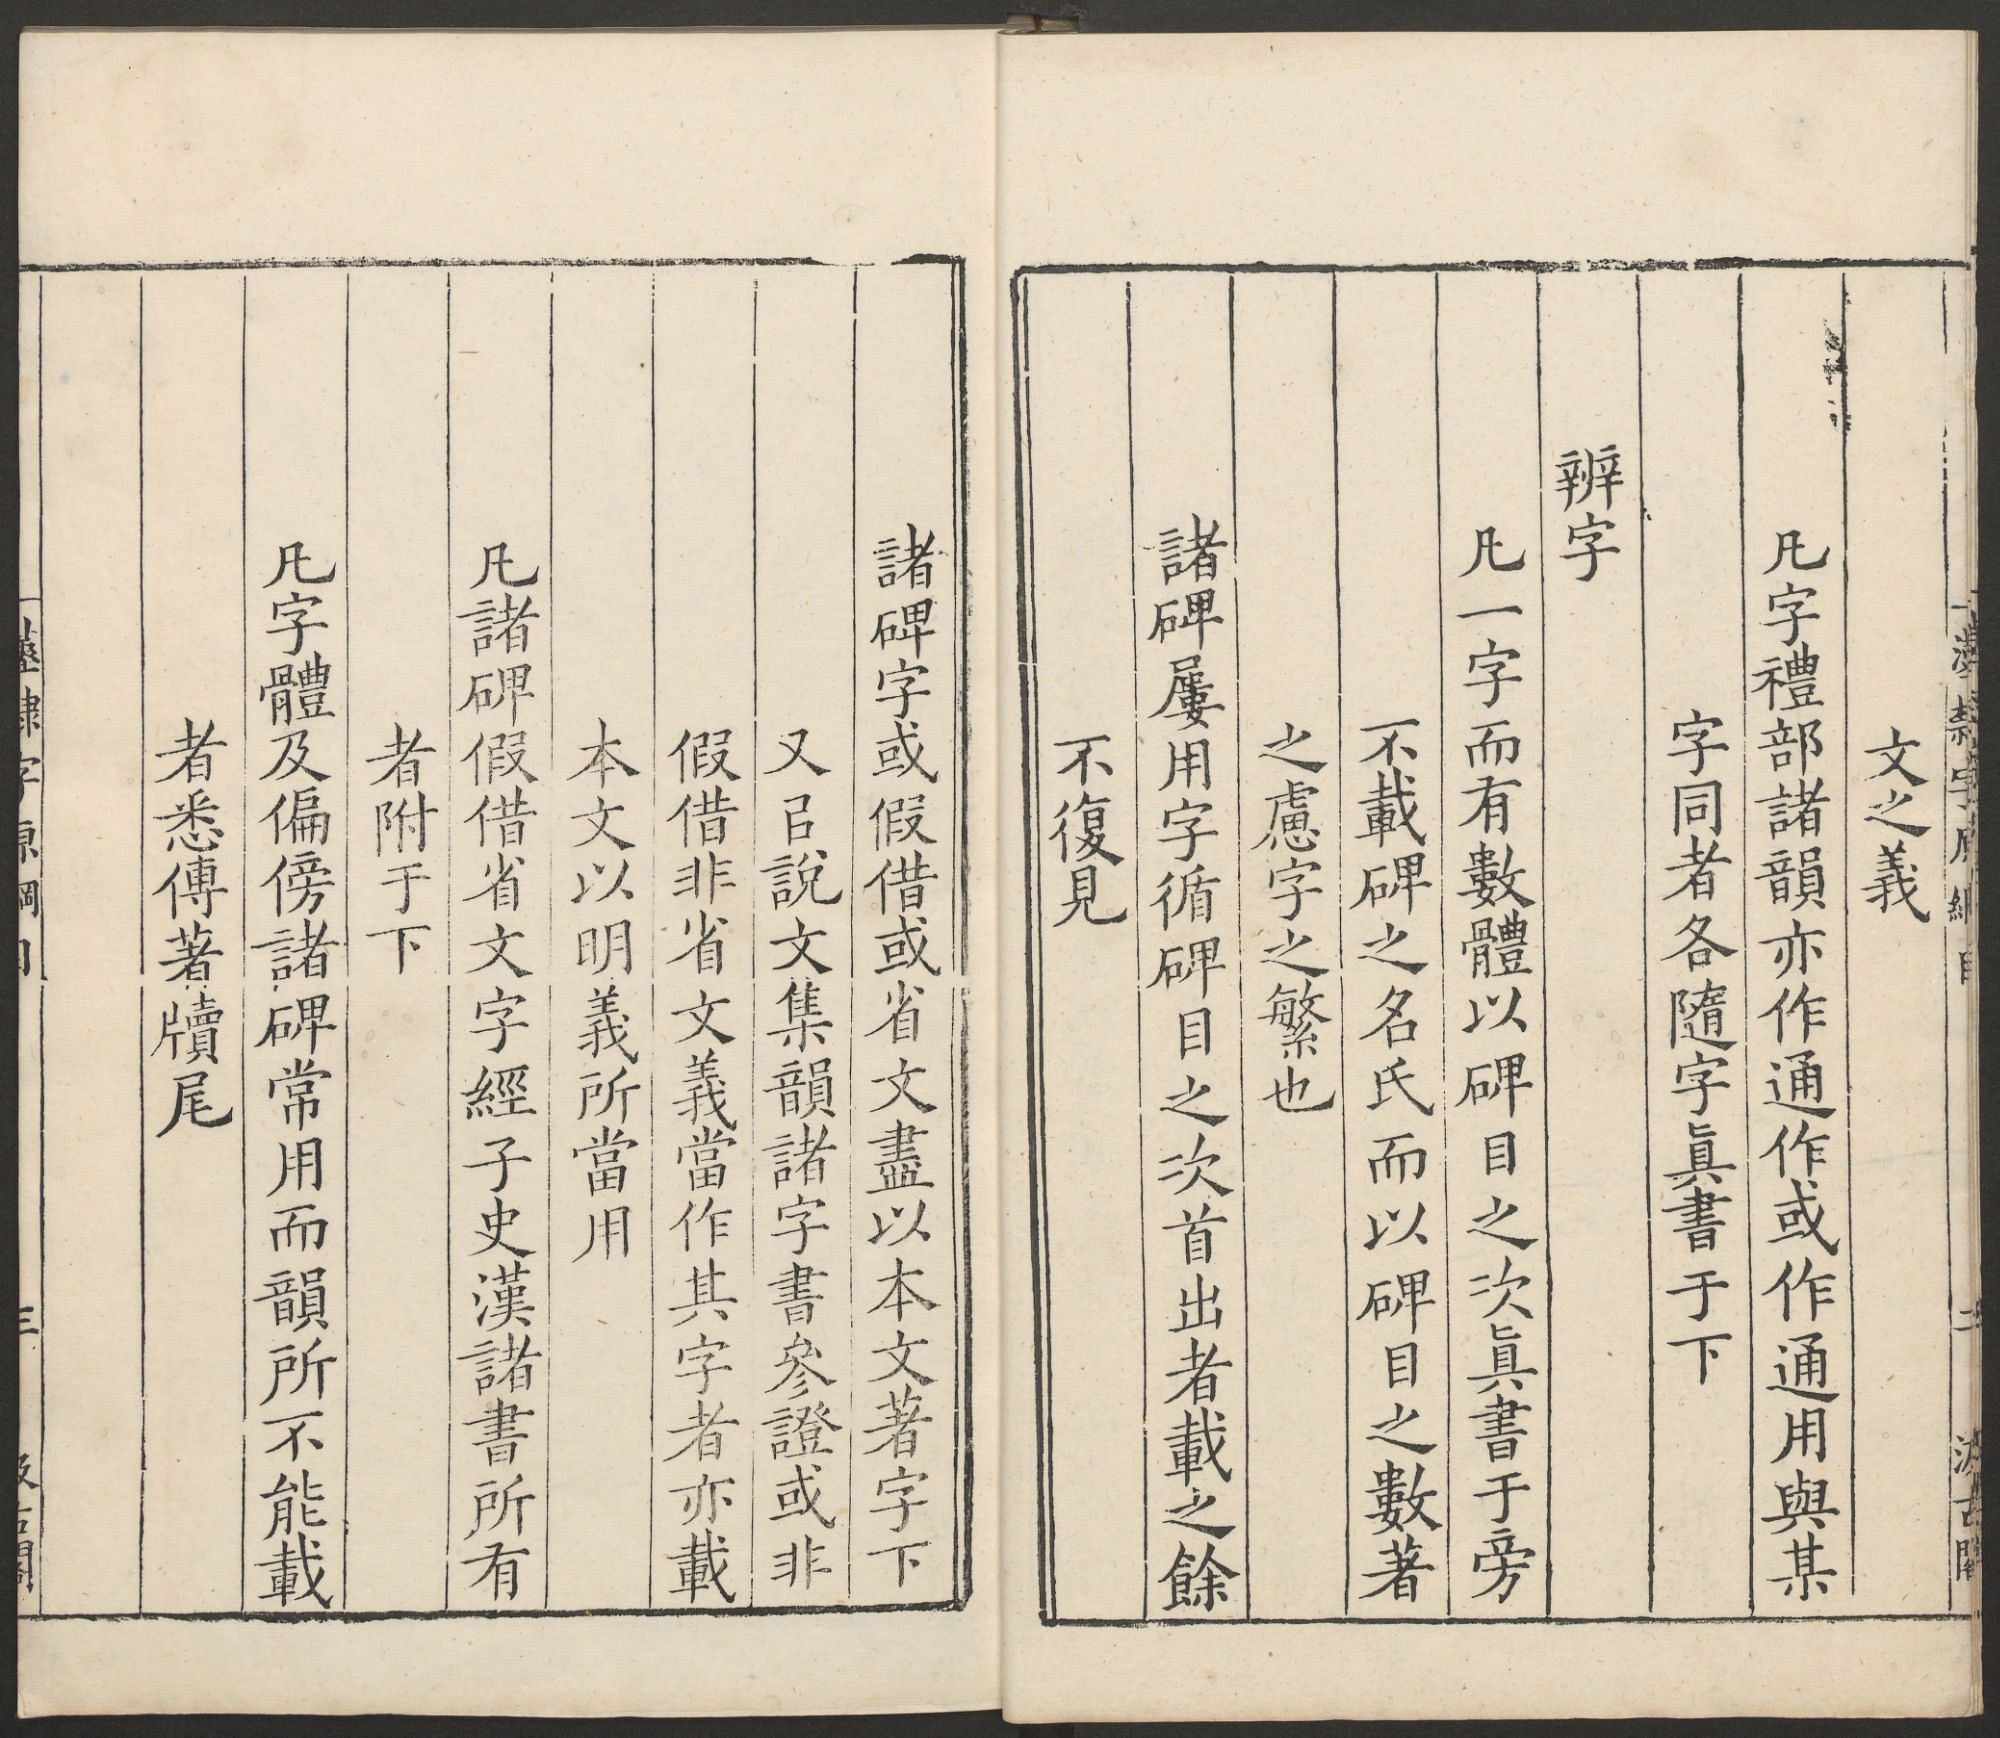 文之義
凡字禮部諸韻亦作通作或作通用與某
字同者各隨字眞書于下
辨字
凡一字而有數體以碑目之次眞書于旁
不載碑之名氏而以碑目之數著
之慮字之繁也
諸碑屢用字循碑目之次首出者載之餘
不復見
諸碑字或假借或省文盡以本文著字下
又㠯說文集韻諸字書參證或非
假借非省文義當作其字者亦載
本文以明義所當用
凡諸碑假借省文字經子史漢諸書所有
者附于下
凡字體及偏傍諸碑常用而韻所不能載
者悉傅著牘尾
隸字原綱目
三
汲古閣